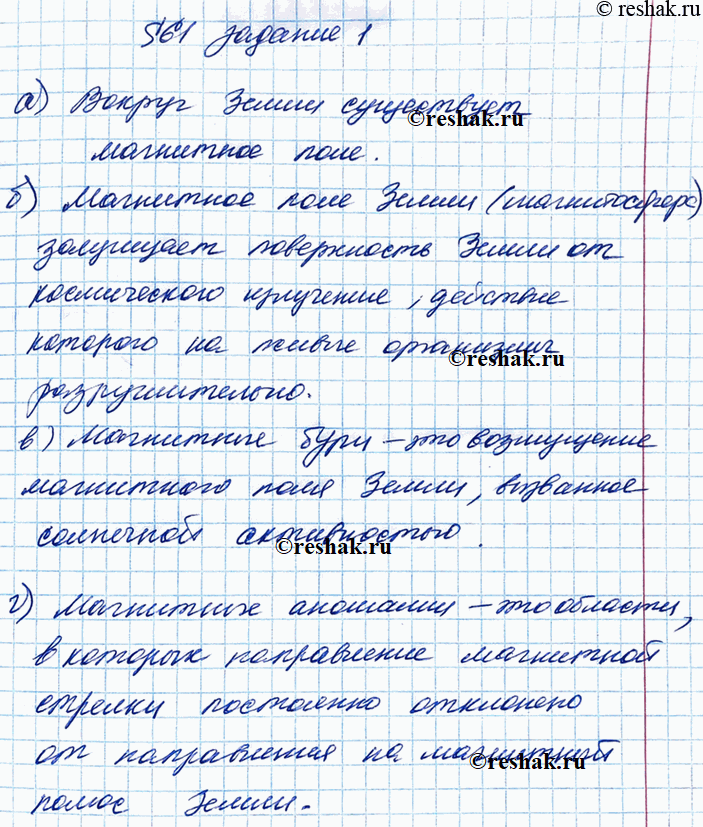 © reshak.ru
§61 задание 1
а) Вокруг Земли существует
©reshak.ru
магнитное поле.
б) Магнитное поле Земли (магнитосфера)
защищает поверхность Земли от
космического излучение, действие
которого на живые организмы
©reshak.ru
разрушительно.
в) Магнитные бури – это возмущение
магнитного поля Земли, вызванное
солнечной активностью.
©reshak.ru
г) Магнитные аномалии – это области,
в которых направление магнитной
стрелки постоянно отклонено
от направления на магнитный
©reshak.ru
полюс Земли.